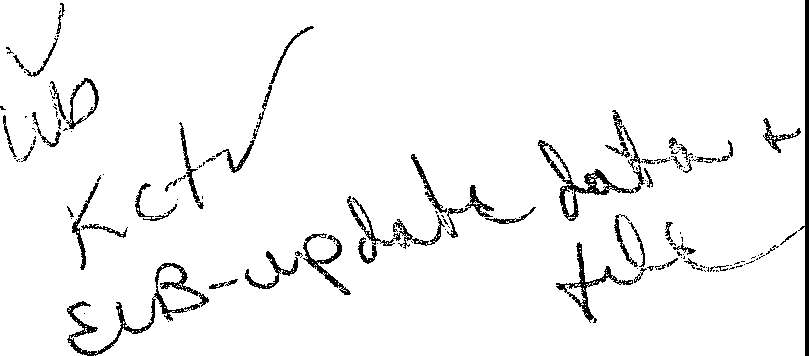 WB
KCT
EWB-update data +
file